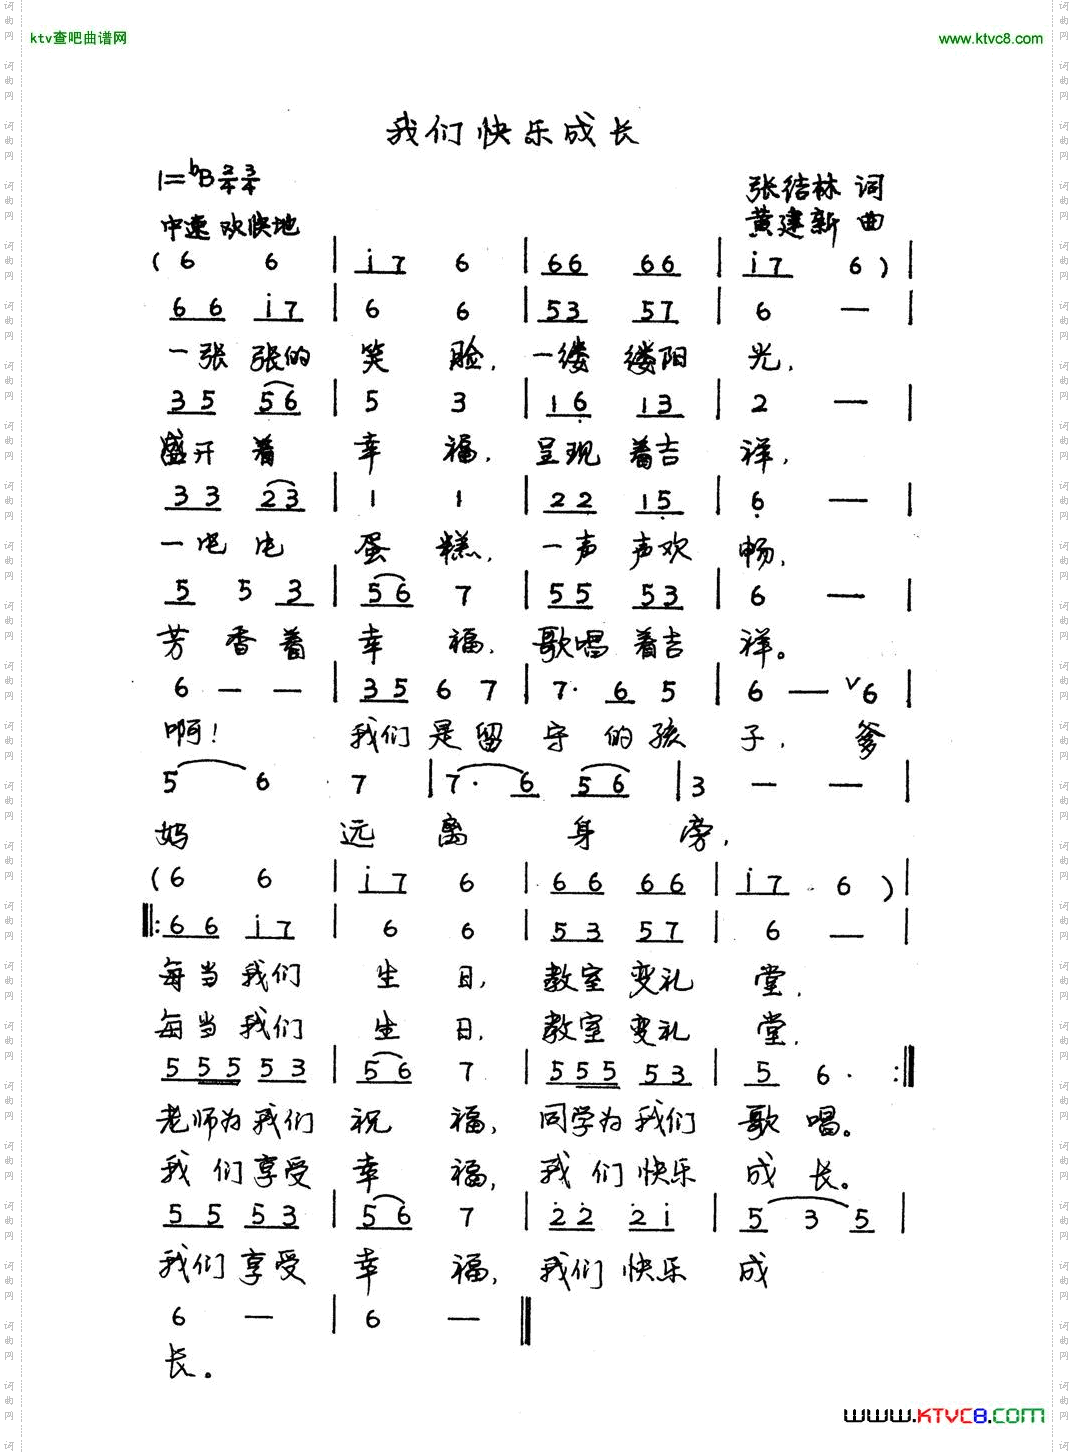 ktv查吧曲谱网
www.ktvc8.com
我们快乐成长
1=bB 2/4 3/4
张结林 词
中速 欢快地
黄建新 曲
(6 6 | i7 6 | 66 66 | i7 6)|
66 i7 | 6 6 | 53 57 | 6 — |
一张张的 笑脸, 一缕缕阳光,
35 56 | 5 3 | 16 13 | 2 — |
盛开着 幸福, 呈现着吉祥,
33 23 | 1 1 | 22 15 | 6 — |
一屯屯 蛋糕, 一声声欢畅,
5 5 3 | 56 7 | 55 53 | 6 — |
芳香着 幸福, 歌唱着吉祥。
6 — — | 35 6 7 | 7· 6 5 | 6 — v6 |
啊! 我们是留守的孩子, 爹
5 6 7 | 7· 6 56 | 3 — — |
妈 远离身旁,
(6 6 | i7 6 | 66 66 | i7 6)|
‖:66 i7 | 6 6 | 53 57 | 6 — |
每当我们 生日, 教室变礼堂,
每当我们 生日, 教室变礼堂,
555 53 | 56 7 | 555 53 | 5 6· :‖
老师为我们 祝福, 同学为我们 歌唱。
我们享受 幸福, 我们快乐 成长。
55 53 | 56 7 | 22 2i | 5 3 5 |
我们享受 幸福, 我们快乐 成
6 — | 6 — ‖
长。
www.KTVC8.com